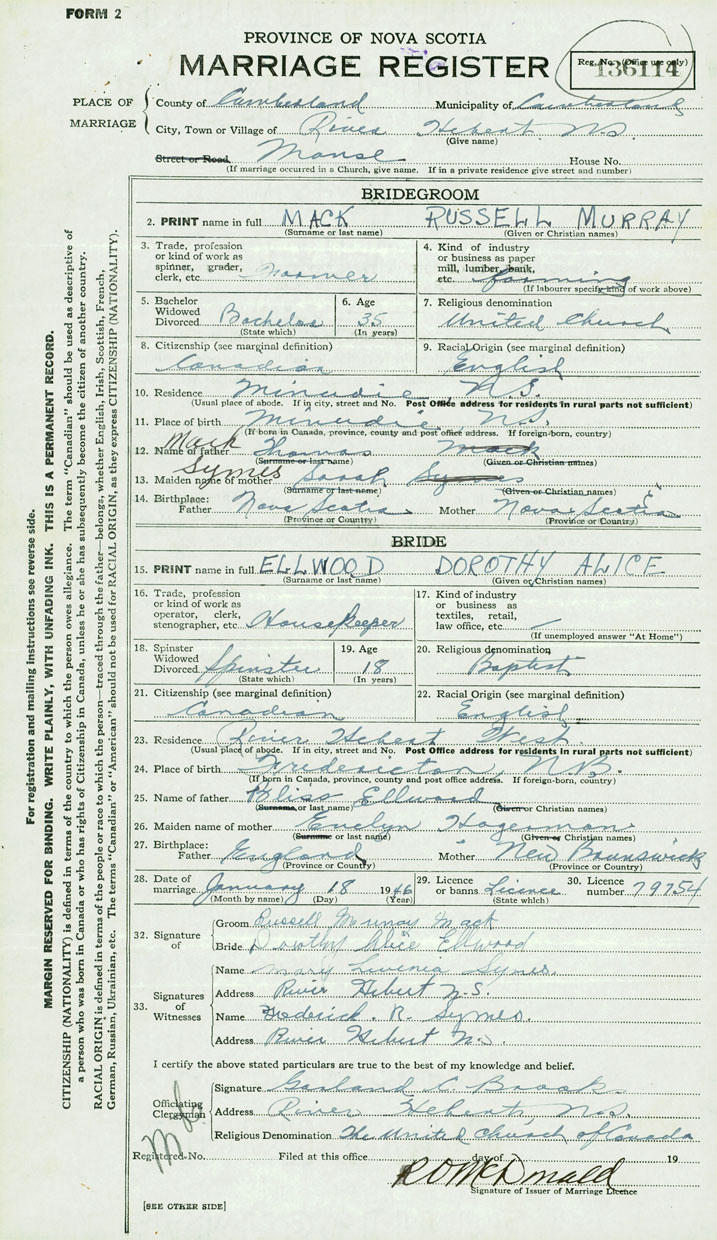 FORM 2
PROVINCE OF NOVA SCOTIA
MARRIAGE REGISTER
Reg. No. (Office use only)
136114
PLACE OF MARRIAGE
County of Cumberland Municipality of Cumberland
City, Town or Village of River Hebert N.S.
(Give name)
Street or Road Manse House No.
(If marriage occurred in a Church, give name. If in a private residence give street and number)
BRIDEGROOM
2. PRINT name in full MACK RUSSELL MURRAY
(Surname or last name) (Given or Christian names)
3. Trade, profession or kind of work as spinner, grader, clerk, etc.
4. Kind of industry or business as paper mill, lumber, bank, etc. farming
(If labourer specify kind of work above)
5. Bachelor Widowed Divorced Bachelor
(State which)
6. Age 35
(In years)
7. Religious denomination
United Church
8. Citizenship (see marginal definition)
Canadian
9. Racial Origin (see marginal definition)
English
10. Residence Minudie, N.S.
(Usual place of abode. If in city, street and No. Post Office address for residents in rural parts not sufficient)
11. Place of birth Minudie, N.S.
(If born in Canada, province, county and post office address. If foreign-born, country)
12. Name of father Mack Thomas Mack
(Surname or last name) (Given or Christian names)
13. Maiden name of mother Symes Sarah Symes
(Surname or last name) (Given or Christian names)
14. Birthplace: Father Nova Scotia Mother Nova Scotia
(Province or Country) (Province or Country)
BRIDE
15. PRINT name in full ELLWOOD DOROTHY ALICE
(Surname or last name) (Given or Christian names)
16. Trade, profession or kind of work as operator, clerk, stenographer, etc. Housekeeper
17. Kind of industry or business as textiles, retail, law office, etc.
(If unemployed answer "At Home")
18. Spinster Widowed Divorced Spinster
(State which)
19. Age 18
(In years)
20. Religious denomination
Baptist
21. Citizenship (see marginal definition)
Canadian
22. Racial Origin (see marginal definition)
English
23. Residence River Hebert West
(Usual place of abode. If in city, street and No. Post Office address for residents in rural parts not sufficient)
24. Place of birth Fredericton, N.B.
(If born in Canada, province, county and post office address. If foreign-born, country)
25. Name of father Bliss Ellwood
(Surname or last name) (Given or Christian names)
26. Maiden name of mother Evelyn Hagerman
(Surname or last name) (Given or Christian names)
27. Birthplace: Father England Mother New Brunswick
(Province or Country) (Province or Country)
28. Date of marriage January 18 1946
(Month by name) (Day) (Year)
29. Licence or banns Licence
(State which)
30. Licence number 79754
32. Signature of
Groom Russell Murray Mack
Bride Dorothy Alice Ellwood
33. Signatures of Witnesses
Name Mary Symes
Address River Hebert N.S.
Name Frederick R. Symes
Address River Hebert N.S.
I certify the above stated particulars are to the best of my knowledge and belief.
Officiating Clergyman
Signature Garland C. Brooks
Address River Hebert, N.S.
Religious Denomination The United Church of Canada
Registered No. Filed at this office day of 19
R O McDonald
Signature of Issuer of Marriage Licence
[SEE OTHER SIDE]
For registration and mailing instructions see reverse side.
MARGIN RESERVED FOR BINDING. WRITE PLAINLY, WITH UNFADING INK. THIS IS A PERMANENT RECORD.
CITIZENSHIP (NATIONALITY) is defined in terms of the country to which the person owes allegiance. The term "Canadian" should be used as descriptive of
a person who was born in Canada or who has rights of Citizenship in Canada, unless he or she has subsequently become the citizen of another country.
RACIAL ORIGIN is defined in terms of the people or race to which the person—traced through the father—belongs, whether English, Irish, Scottish, French,
German, Russian, Ukrainian, etc. The terms "Canadian" or "American" should not be used for RACIAL ORIGIN, as they express CITIZENSHIP (NATIONALITY).